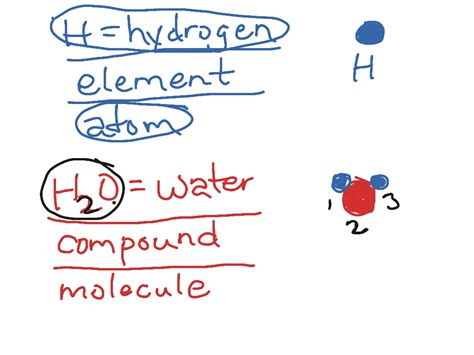 H = hydrogen
H
element
atom
H2O = water
1 3
2
compound
molecule